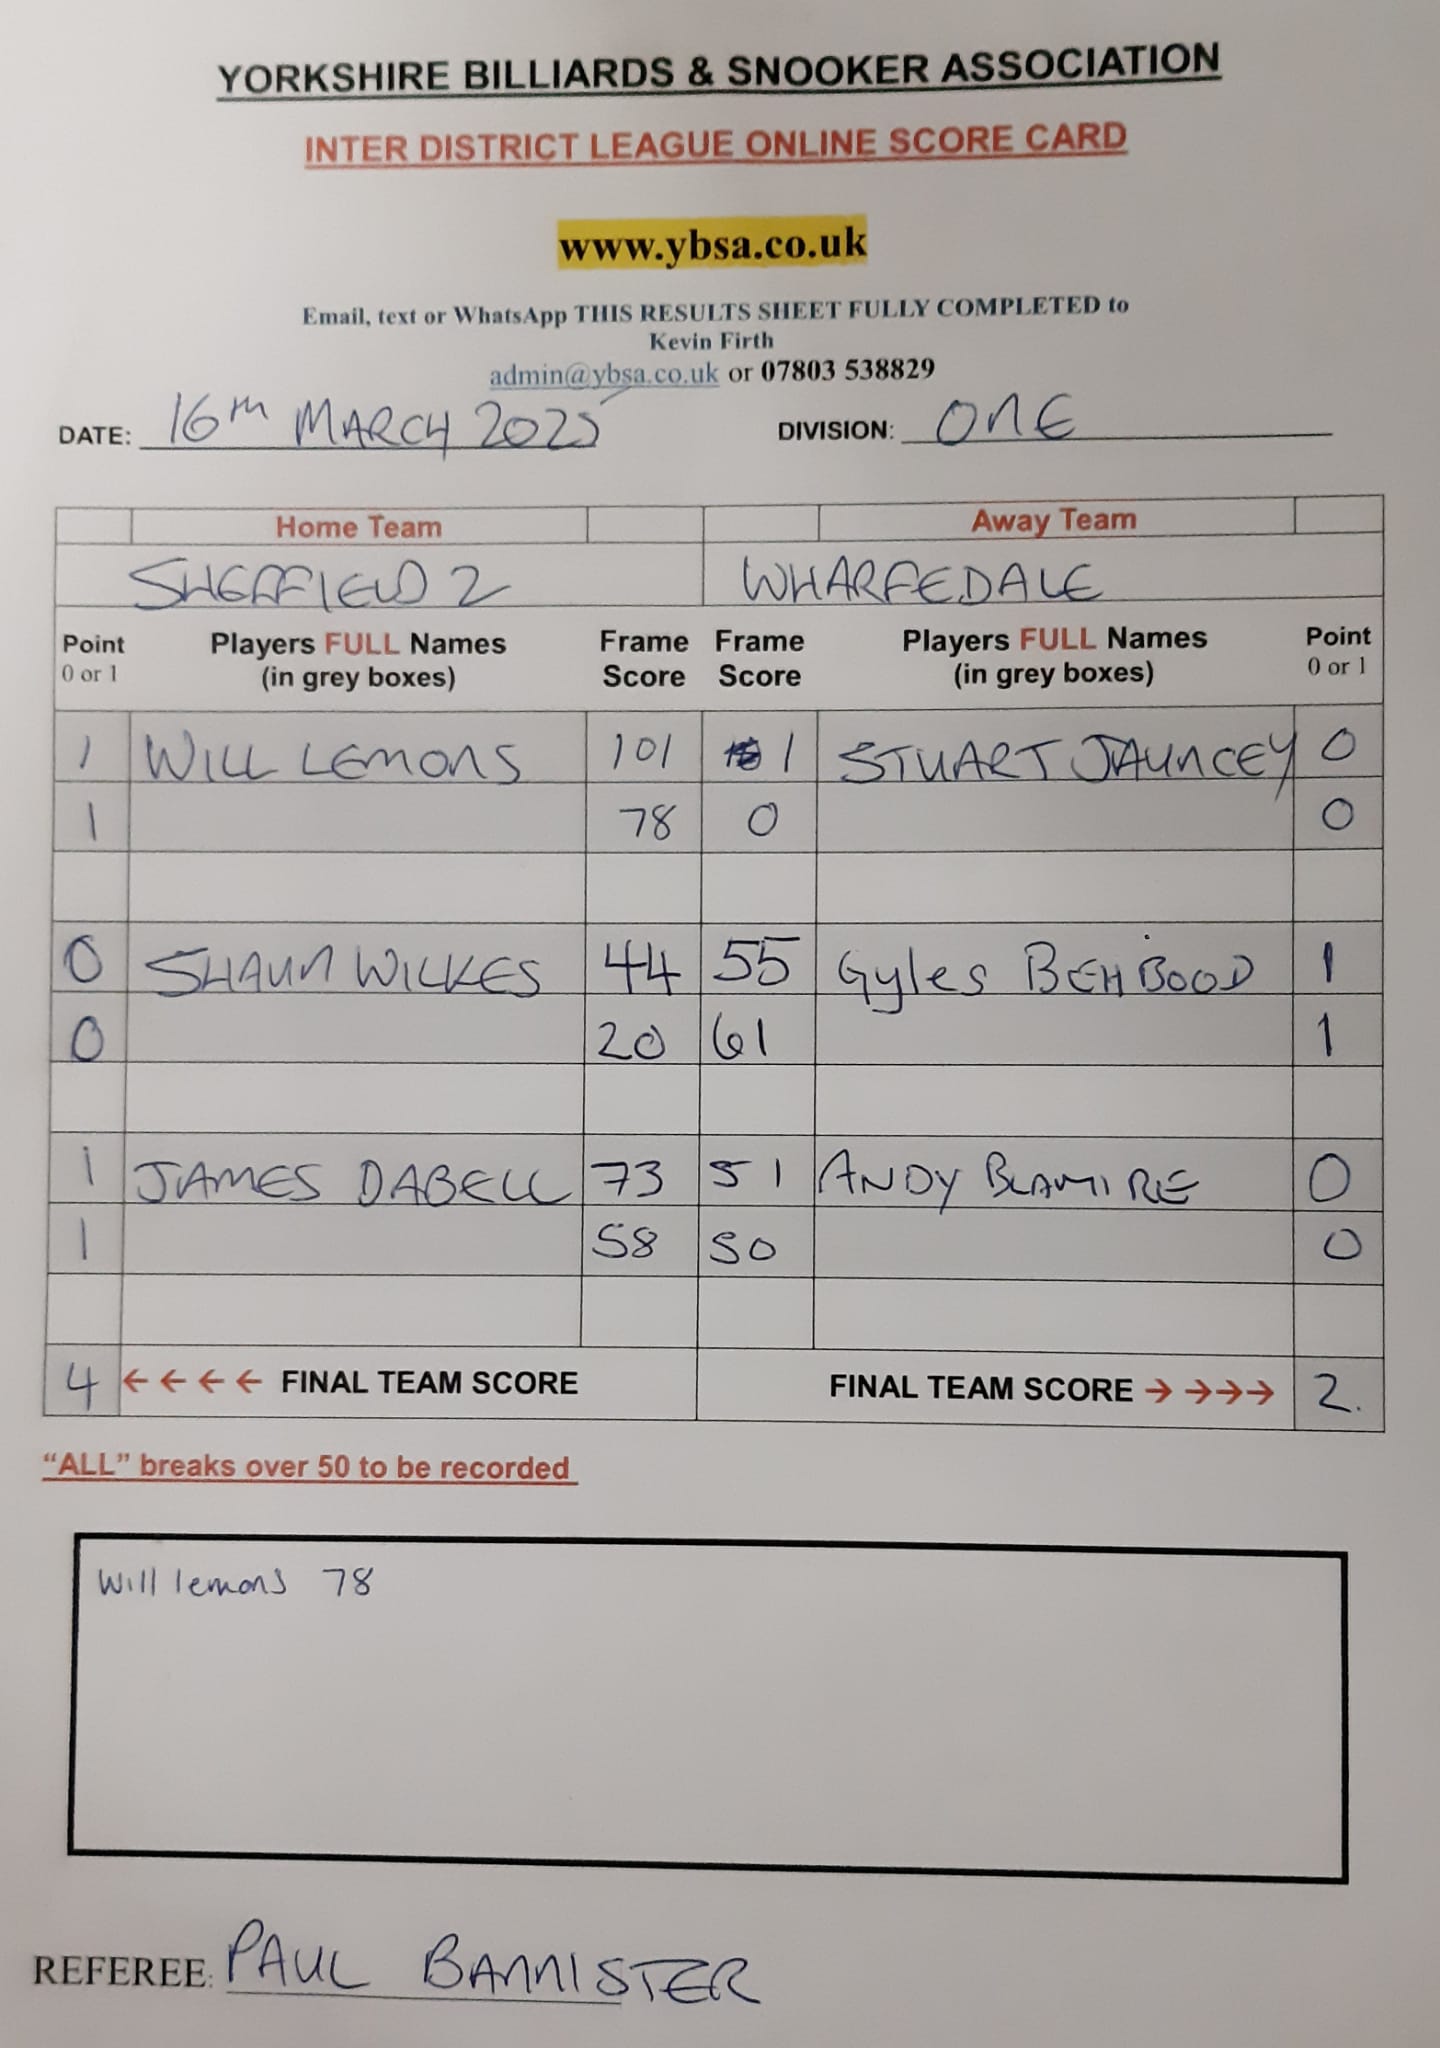 YORKSHIRE BILLIARDS & SNOOKER ASSOCIATION
INTER DISTRICT LEAGUE ONLINE SCORE CARD
www.ybsa.co.uk
Email, text or WhatsApp THIS RESULTS SHEET FULLY COMPLETED to
Kevin Firth
admin@ybsa.co.uk or 07803 538829
DATE: 16TH MARCH 2025 DIVISION: ONE
Home Team Away Team
SHEFFIELD 2 WHARFEDALE
Point Players FULL Names Frame Frame Players FULL Names Point
0 or 1 (in grey boxes) Score Score (in grey boxes) 0 or 1
1 WILL LEMONS 101 1 STUART JAUNCEY 0
1 78 0 0
0 SHAUN WILKES 44 55 Gyles BEHBOOD 1
0 20 61 1
1 JAMES DABELL 73 51 ANDY BLAMIRE 0
1 58 50 0
4 ←←←← FINAL TEAM SCORE FINAL TEAM SCORE →→→→ 2.
“ALL” breaks over 50 to be recorded
Will lemons 78
REFEREE: PAUL BANNISTER